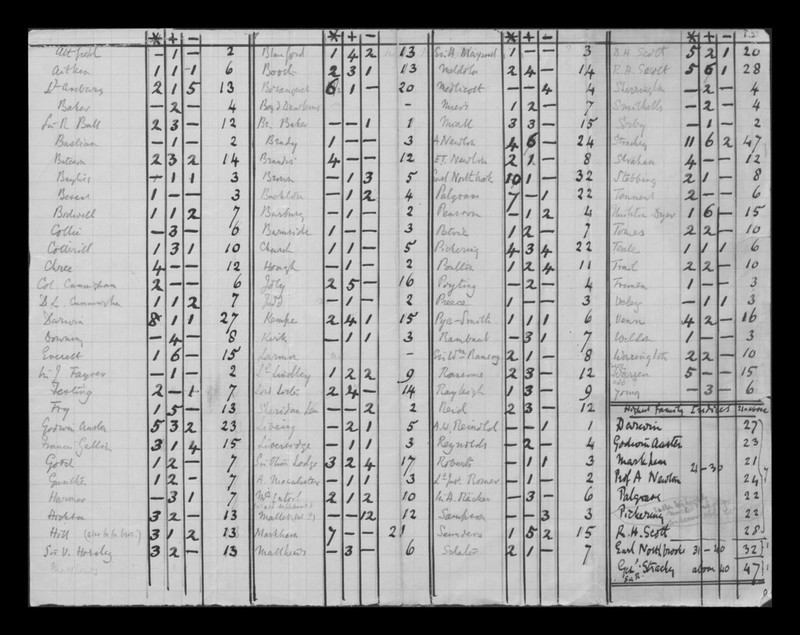 * + -
- 1 - 2
Aitken 1 1 1 6
2 1 5 13
Baker - 2 - 4
Sir R Ball 2 3 - 12
Bastian - 1 - 2
Bateson 2 3 2 14
Bayliss + 1 1 3
1 - - 3
Bodwell 1 1 2 7
Collie - 3 - 6
Cotterill 1 3 1 10
Chree 4 - - 12
Col. Cunningham 2 - - 6
D. L. Cunningham 1 1 2 7
Darwin 8 1 1 27
Downing - 4 - 8
Everett 1 6 - 15
Sir J Fayrer - 1 - 2
Festing 2 - 1 7
Fry 1 5 - 13
Godwin Austen 5 3 2 23
Francis Galton 3 1 4 15
Gotch 1 2 - 7
Gunther 1 2 - 7
Harmer - 3 1 7
3 2 - 13
Hill 3 1 2 13
Sir V. Horsley 3 2 - 13
* + -
Blanford 1 4 2 13
Booth 2 3 1 13
Bosanquet 6 1 - 20
Boyd Dawkins -
Br. Baker - - 1 1
Brady 1 - - 3
Brandis 4 - - 12
Brown - 1 3 5
Buckton - 1 2 4
Busburg - 1 - 2
Burnside 1 - - 3
Church 1 1 - 5
Hough - 1 - 2
Joly 2 5 - 16
Judd - 1 - 2
Kempe 2 4 1 15
Kirk - 1 1 3
Larmor -
Lindley 1 2 2 9
Lord Lister 2 4 - 14
Sheridan Lea - - 2 2
Liveing - 2 1 5
Liversidge - 1 1 3
Sir Oliver Lodge 3 2 4 17
A. Macalister - 1 1 3
McIntosh 2 1 2 10
Mallet - - 12 12
Markham 7 - - 21
Matthews - 3 - 6
* + -
Sir H. Maxwell 1 - - 3
Meldola 2 4 - 14
Medlicott - - 4 4
Miers 1 2 - 7
Miall 3 3 - 15
A Newton 4 6 - 24
E.T. Newton 2 1 - 8
Earl Northbrook 10 1 - 32
Palgrave 7 - 1 22
Pearson - 1 2 4
1 2 - 7
Pickering 4 3 4 22
Poulton 1 2 4 11
Poynting - 2 - 4
Preece 1 - - 3
Pye-Smith 1 1 1 6
Rambaut - 3 1 7
Sir Wm Ramsay 2 1 - 8
Ransome 2 3 - 12
Rayleigh 1 3 - 9
Reid 2 3 - 12
A.W. Reinold - - 1 1
Reynolds - 2 - 4
Roberts - 1 1 3
- 1 - 2
Sir A. Rücker - 3 - 6
Sampson - - 3 3
Saunders 1 5 2 15
Sclater 2 1 - 7
* + -
D.H. Scott 5 2 1 20
R.H. Scott 5 6 1 28
Sherrington - 2 - 4
Smithells - 2 - 4
Sorby - 1 - 2
Strachey 11 6 2 47
Strahan 4 - - 12
Stebbing 2 1 - 8
Tennant 2 - - 6
Thiselton Dyer 1 6 - 15
Tomes 2 2 - 10
Teale 1 1 1 6
Trail 2 2 - 10
Trimen 1 - - 3
Veley - 1 1 3
Venn 4 2 - 16
Weldon 1 - - 3
Warrington 2 2 - 10
Warren 5 - - 15
Young - 3 - 6
Highest Family Indices
Darwin 27
Godwin Austen 23
Markham 21
21-30
Prof A Newton 24
Palgrave 22
Pickering 22
R.H. Scott 28
Earl Northbrook 31-40 32
Strachey above 40 47